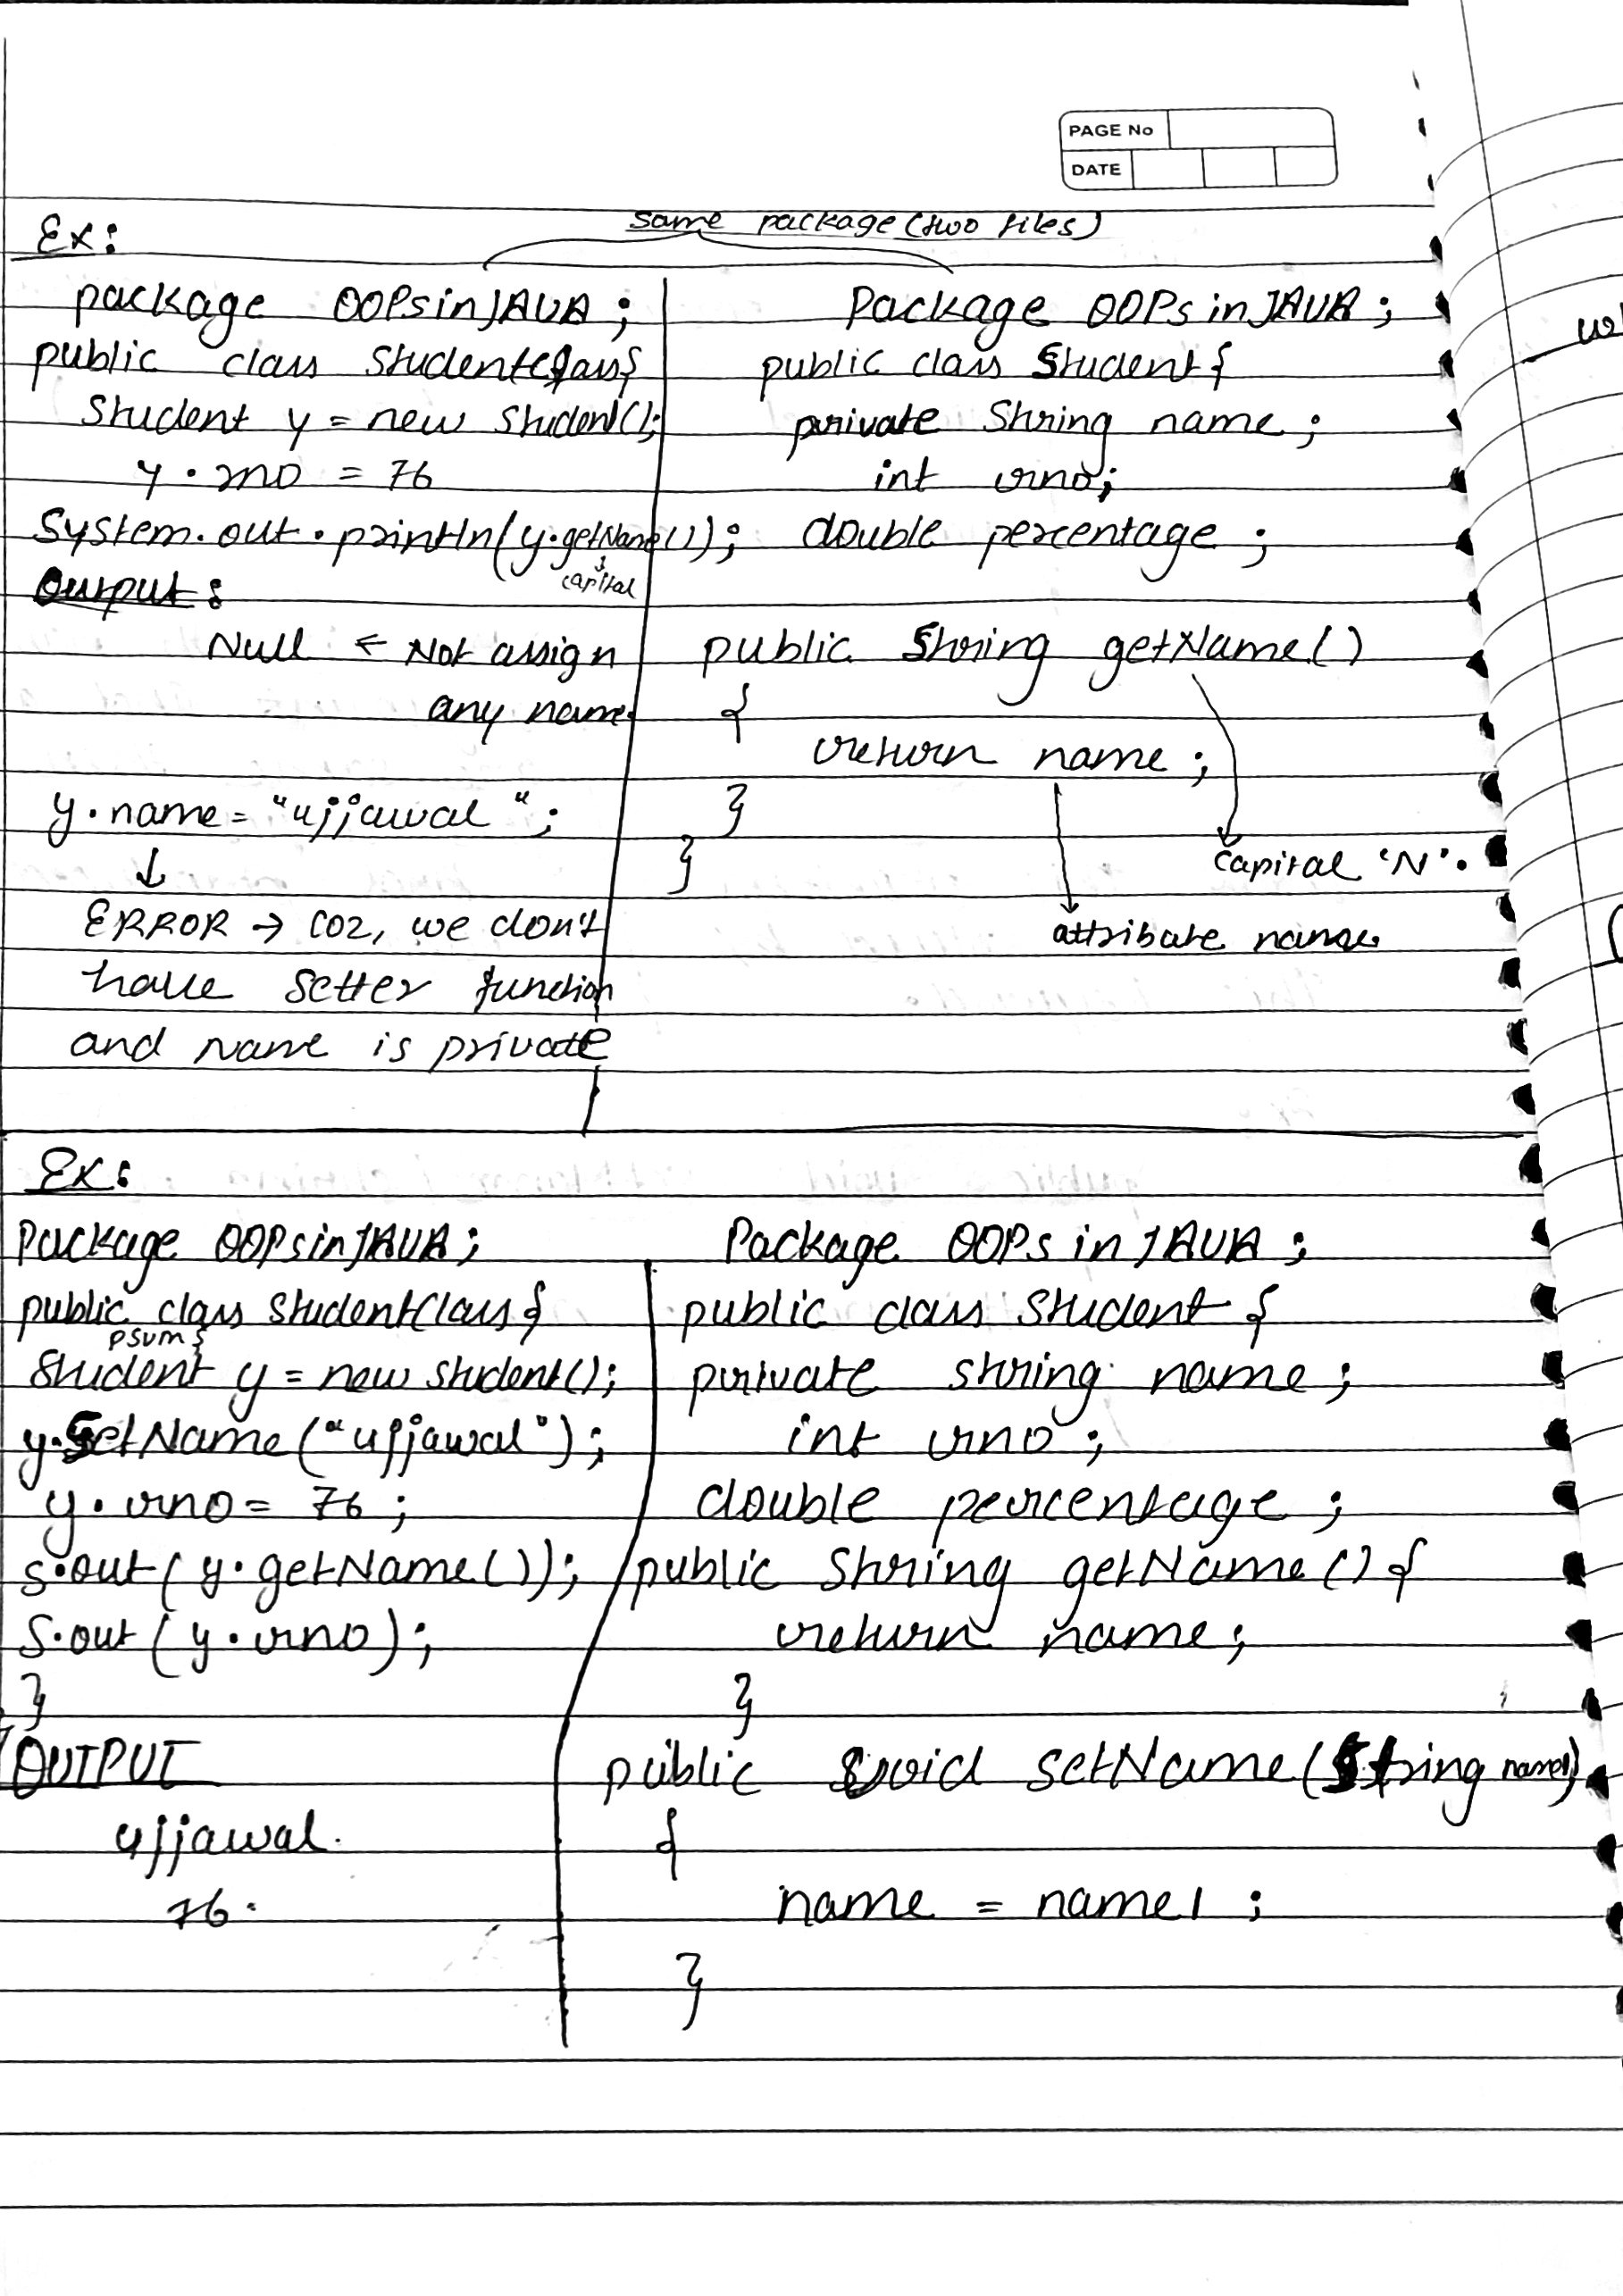 PAGE No
DATE
same package (two files)
Ex:
package OOPsinJAVA ;
public class StudentClass{
Student y = new Student();
y.rno = 76
System.out.println(y.getName());
capital
Output :
Null ← Not assign
any name
y.name = "ujjawal" ;
↓
ERROR → coz, we don't
have setter function
and name is private
Package OOPs in JAVA ;
public class Student {
private String name ;
int rno;
double percentage ;
public String getName()
{
return name ;
}
}
capital 'N'.
attribute name
Ex:
Package OOPsinJAVA ;
public class StudentClass {
psvm {
Student y = new student();
y.setName("ujjawal");
y.rno = 76 ;
s.out( y.getName());
S.out ( y.rno);
}
OUTPUT
ujjawal.
76.
Package OOPs in JAVA ;
public class Student {
private string name ;
int rno ;
double percentage ;
public String getName () {
return name;
}
public void setName (String name1)
{
name = name1 ;
}